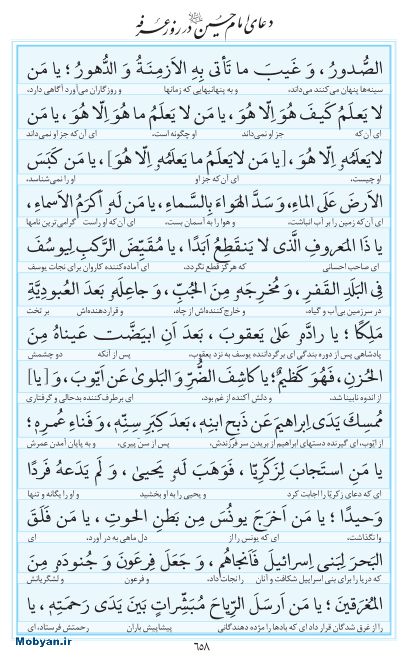 دعای امام حسین علیه السلام در روز عرفه
الصُّدورُ ، وَ غَیبَ ما تَأتی بِهِ الاَزمِنَةُ وَ الدُّهورُ ؛ یا مَن
سینه‌ها پنهان می‌کنند می‌داند، و به پنهانیهایی که زمانها و روزگاران می‌آورد آگاهی دارد،
لا یَعلَمُ کَیفَ هُوَ اِلّا هُوَ ، یا مَن لا یَعلَمُ ما هُوَ اِلّا هُوَ ، یا مَن
ای آن‌که جز او نمی‌داند او چگونه است، ای آن‌که جز او نمی‌داند
لا یَعلَمُهُ اِلّا هُوَ ، [یا مَن لا یَعلَمُ ما یَعلَمُهُ اِلّا هُوَ] ، یا مَن کَبَسَ
او چیست، ای آن که جز او او را نمی‌شناسد،
الاَرضَ عَلَی الماءِ، وَ سَدَّ الهَواءَ بِالسَّماءِ، یا مَن لَهُ اَکرَمُ الاَسماءِ،
ای آن‌که زمین را بر آب انباشت، و هوا را به آسمان بست، ای آن‌که او راست گرامی‌ترین نامها
یا ذَا المَعروفِ الَّذی لا یَنقَطِعُ اَبَدًا ، یا مُقَیِّضَ الرَّکبِ لِیوسُفَ
ای صاحب احسانی که هرگز قطع نگردد، ای آماده کننده کاروان برای نجات یوسف
فِی البَلَدِ القَفرِ ، وَ مُخرِجَهُ مِنَ الجُبِّ ، وَ جاعِلَهُ بَعدَ العُبودِیَّةِ
در سرزمین بی‌آب و گیاه، و خارج کننده‌اش از چاه، و قراردهنده‌اش بر تخت
مَلِکًا ؛ یا رادَّهُ عَلیٰ یَعقوبَ ، بَعدَ اَنِ ابیَضَّت عَیناهُ مِنَ
پادشاهی پس از دوره بندگی ای برگرداننده یوسف به نزد یعقوب، پس از آنکه دو چشمش
الحُزنِ، فَهُوَ کَظیمٌ؛ یا کاشِفَ الضُّرِّ وَ البَلویٰ عَن اَیّوبَ، وَ [یا]
از اندوه نابینا شد، و دلش آکنده از غم بود، ای برطرف کننده بدحالی و گرفتاری
مُمسِکَ یَدَی اِبراهیمَ عَن ذَبحِ ابنِهِ، بَعدَ کِبَرِ سِنِّهِ، وَ فَناءِ عُمُرِهِ؛
از ایّوب، ای گیرنده دستهای ابراهیم از بریدن سر فرزندش، پس از سنّ پیری، و به پایان آمدن عمرش
یا مَنِ استَجابَ لِزَکَرِیّا ، فَوَهَبَ لَهُ یَحییٰ ، وَ لَم یَدَعهُ فَردًا
ای که دعای زکریّا را اجابت کرد و یحیی را به او بخشید و او را یگانه و تنها
وَحیدًا ؛ یا مَن اَخرَجَ یونُسَ مِن بَطنِ الحوتِ ، یا مَن فَلَقَ
وا نگذاشت، ای که یونس را از دل ماهی به در آورد، ای
البَحرَ لِبَنی اِسرائیلَ فَاَنجاهُم ، وَ جَعَلَ فِرعَونَ وَ جُنودَهُ مِنَ
که دریا را برای بنی اسراییل شکافت و آنان را نجات داد، و فرعون و لشگریانش
المُغرَقینَ ؛ یا مَن اَرسَلَ الرِّیاحَ مُبَشِّراتٍ بَینَ یَدَی رَحمَتِهِ، یا
را از غرق شدگان قرار داد ای که بادها را مژده دهندگانی پیشاپیش باران رحمتش فرستاد، ای
۶۵۸
Mobyan.ir